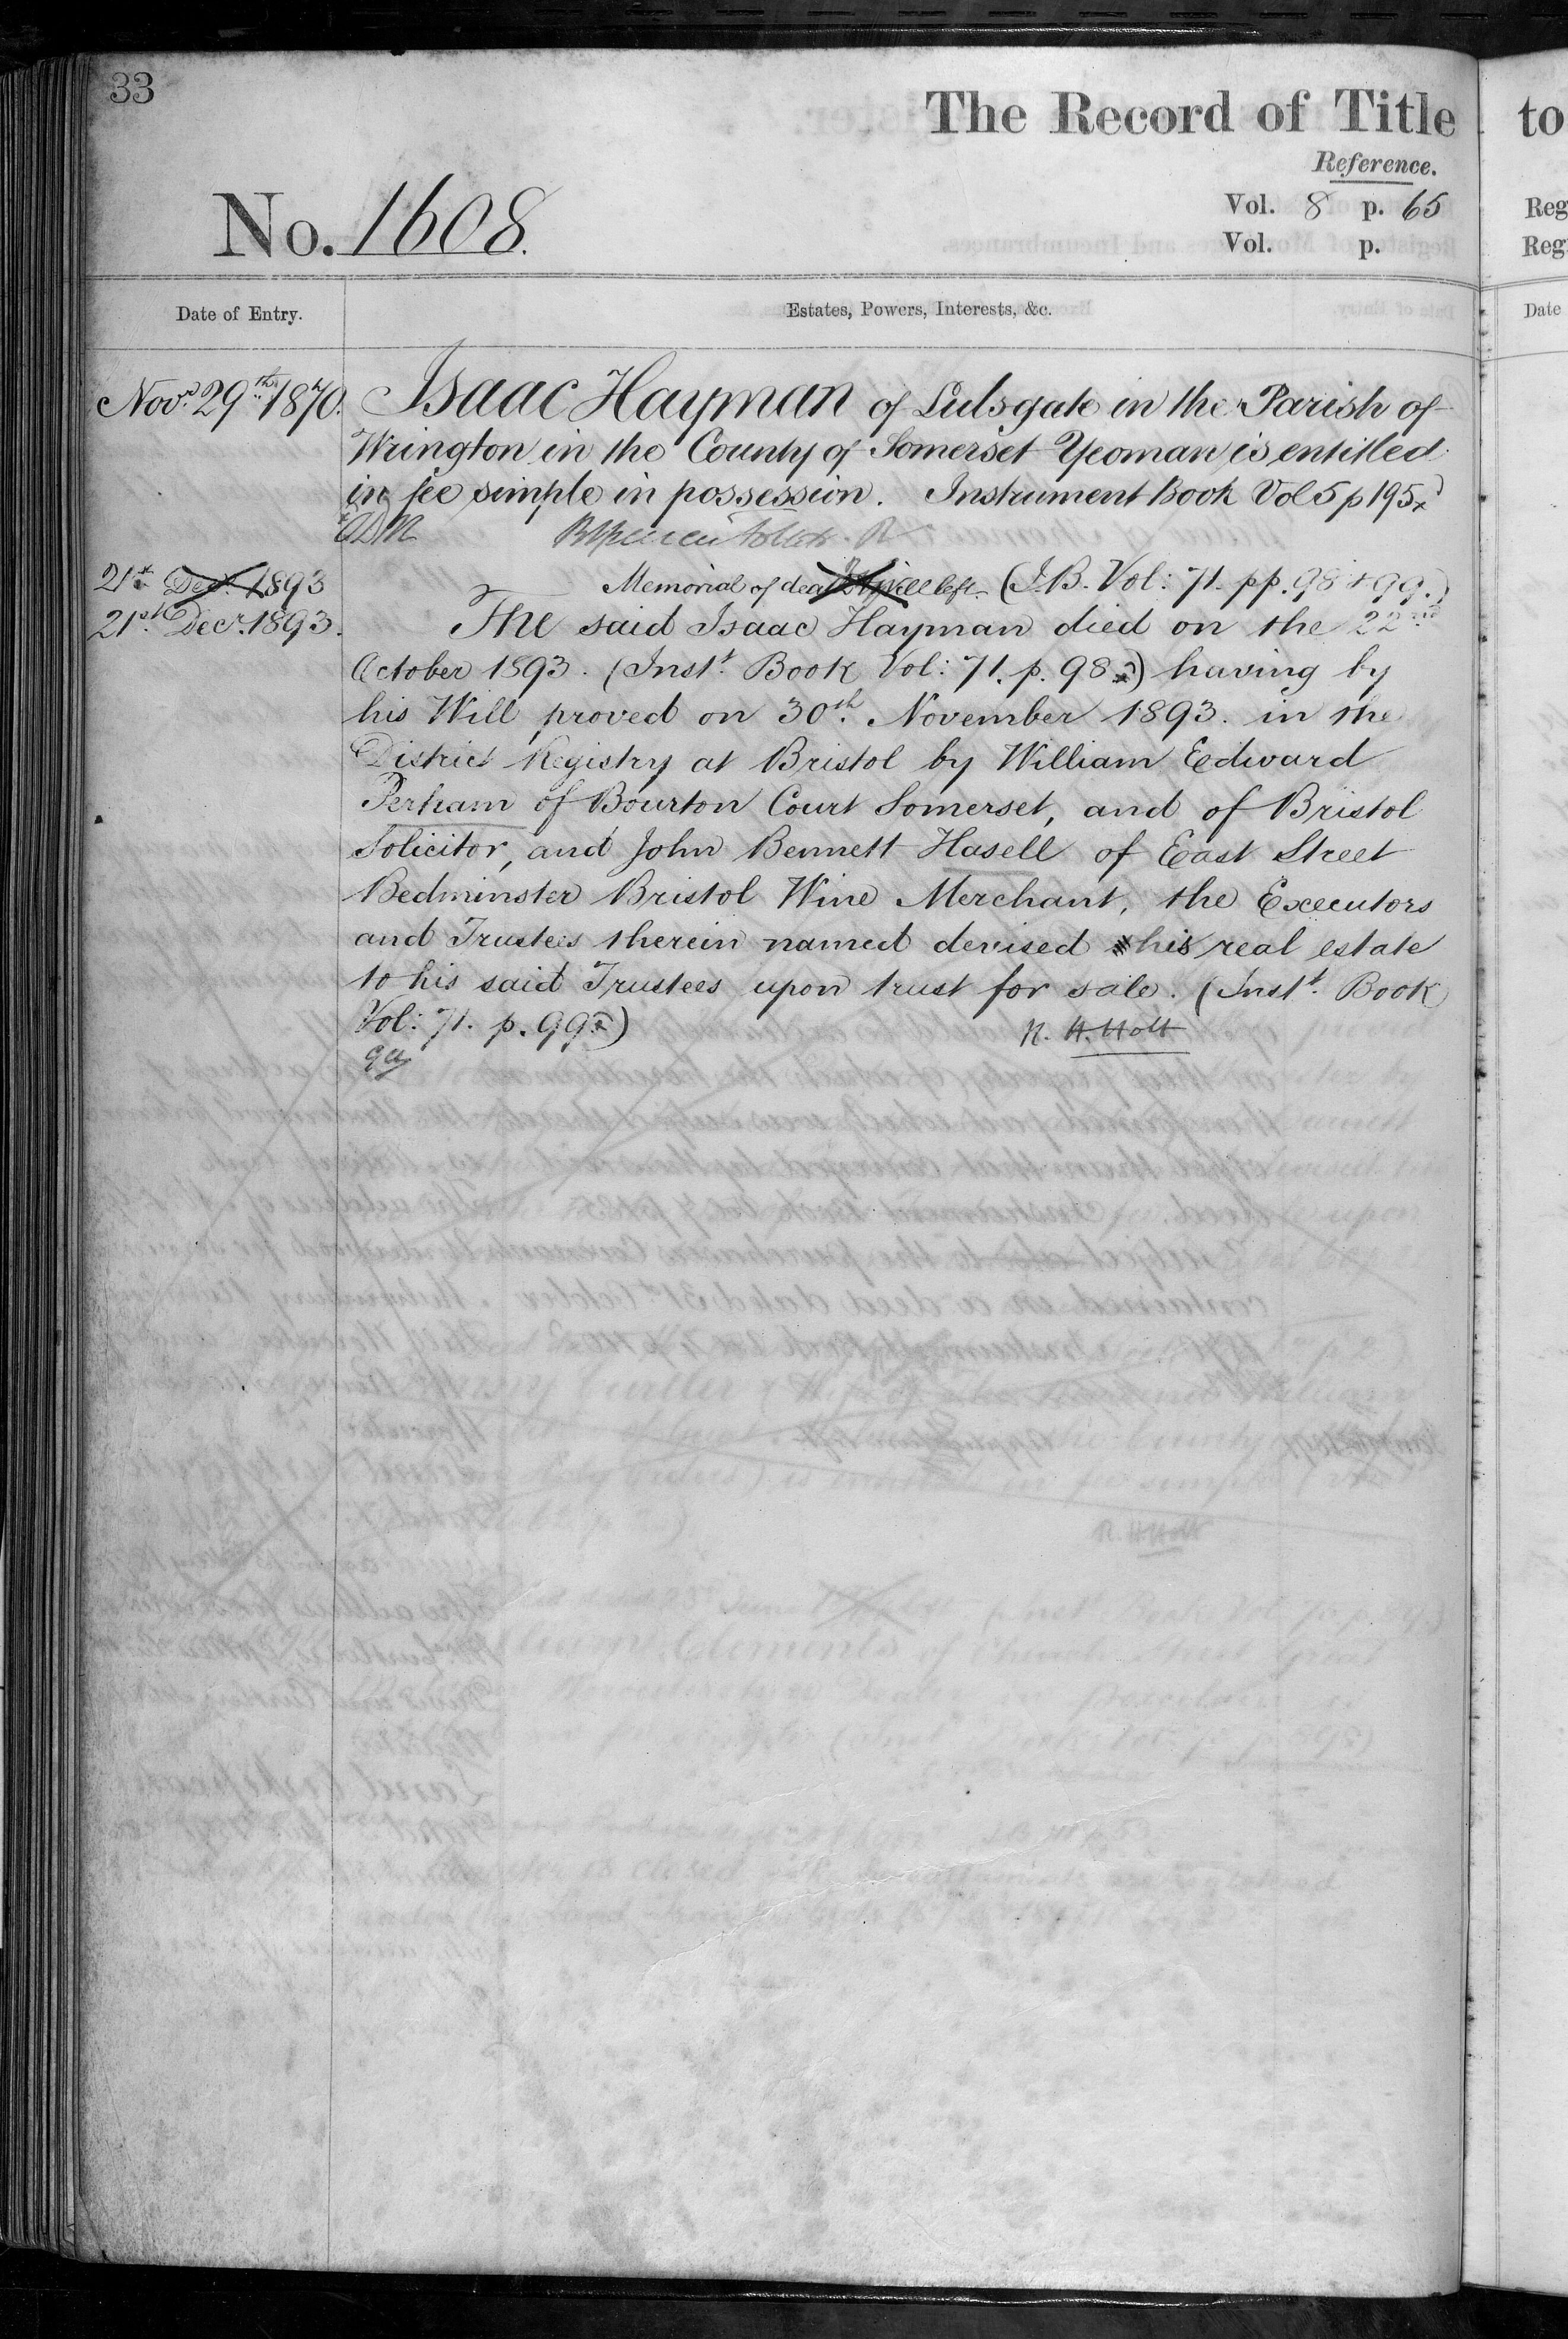 33
The Record of Title
to
Reference.
No. 1608.
Vol. 8 p. 65
Reg
Vol. p.
Reg
Date of Entry.
Estates, Powers, Interests, &c.
Date
Novr. 29th. 1870.
Isaac Hayman of Lulsgate in the Parish of
Wrington in the County of Somerset Yeoman is entitled
in fee simple in possession. Instrument Book Vol 5 p 195
21st Decr. 1893
Memorial of death & will left. (I.B. Vol: 71. pp. 98 & 99.)
21st. Decr. 1893.
The said Isaac Hayman died on the 22nd
October 1893. (Instt. Book Vol: 71. p. 98) having by
his Will proved on 30th. November 1893. in the
District Registry at Bristol by William Edward
Perham of Bourton Court Somerset, and of Bristol
Solicitor, and John Bennett Hasell of East Street
Bedminster Bristol Wine Merchant, the Executors
and Trustees therein named devised his real estate
to his said Trustees upon trust for sale. (Instt. Book
Vol: 71. p. 99)
R. H. Holt